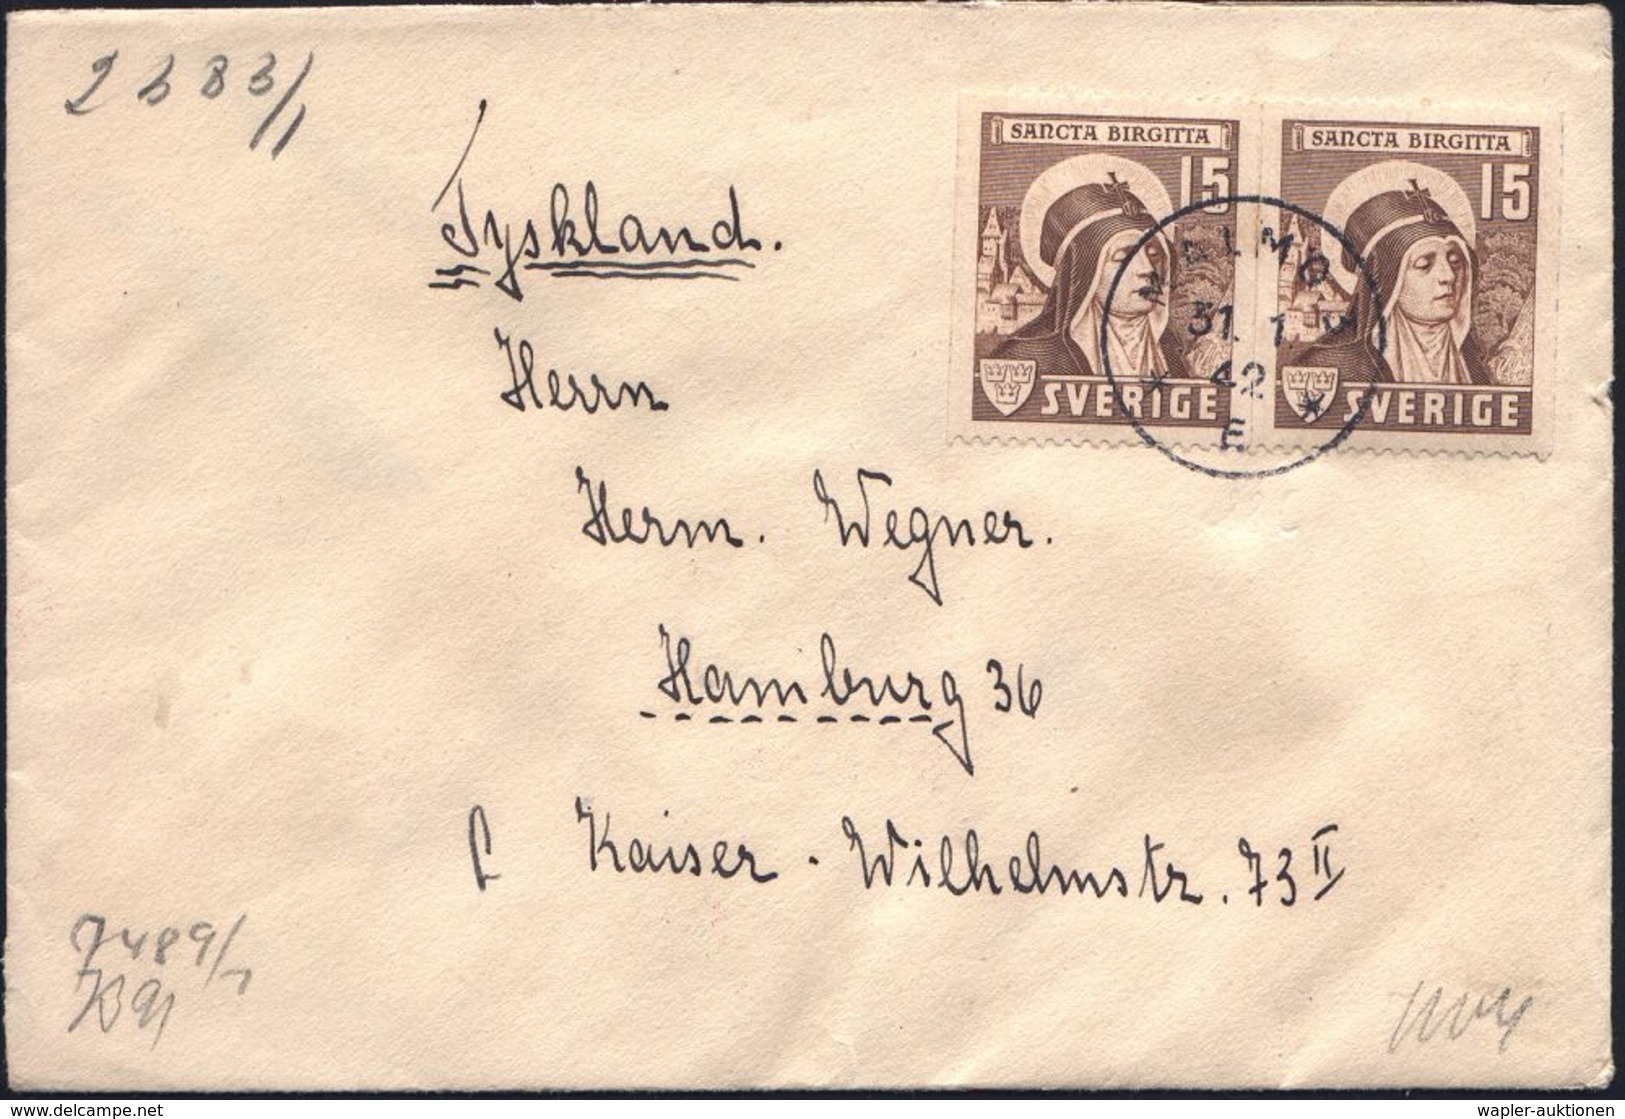 2683/1
SANCTA BIRGITTA
15
SVERIGE
SANCTA BIRGITTA
15
SVERIGE
MALMÖ
31. 1.
42
* E *
Tyskland.
Herrn
Herm. Wegner.
Hamburg 36
Kaiser-Wilhelmstr. 73 II
7489/1
www.delcampe.net
wapler-auktionen